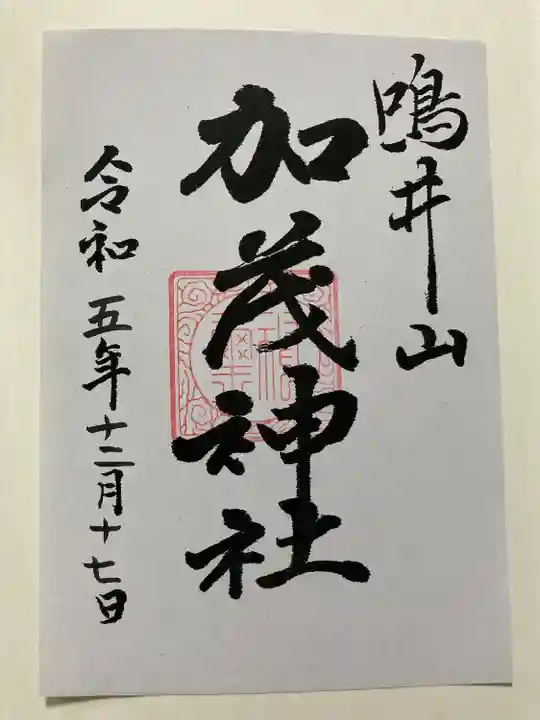 鳴井山
加茂神社
令和五年十二月十七日